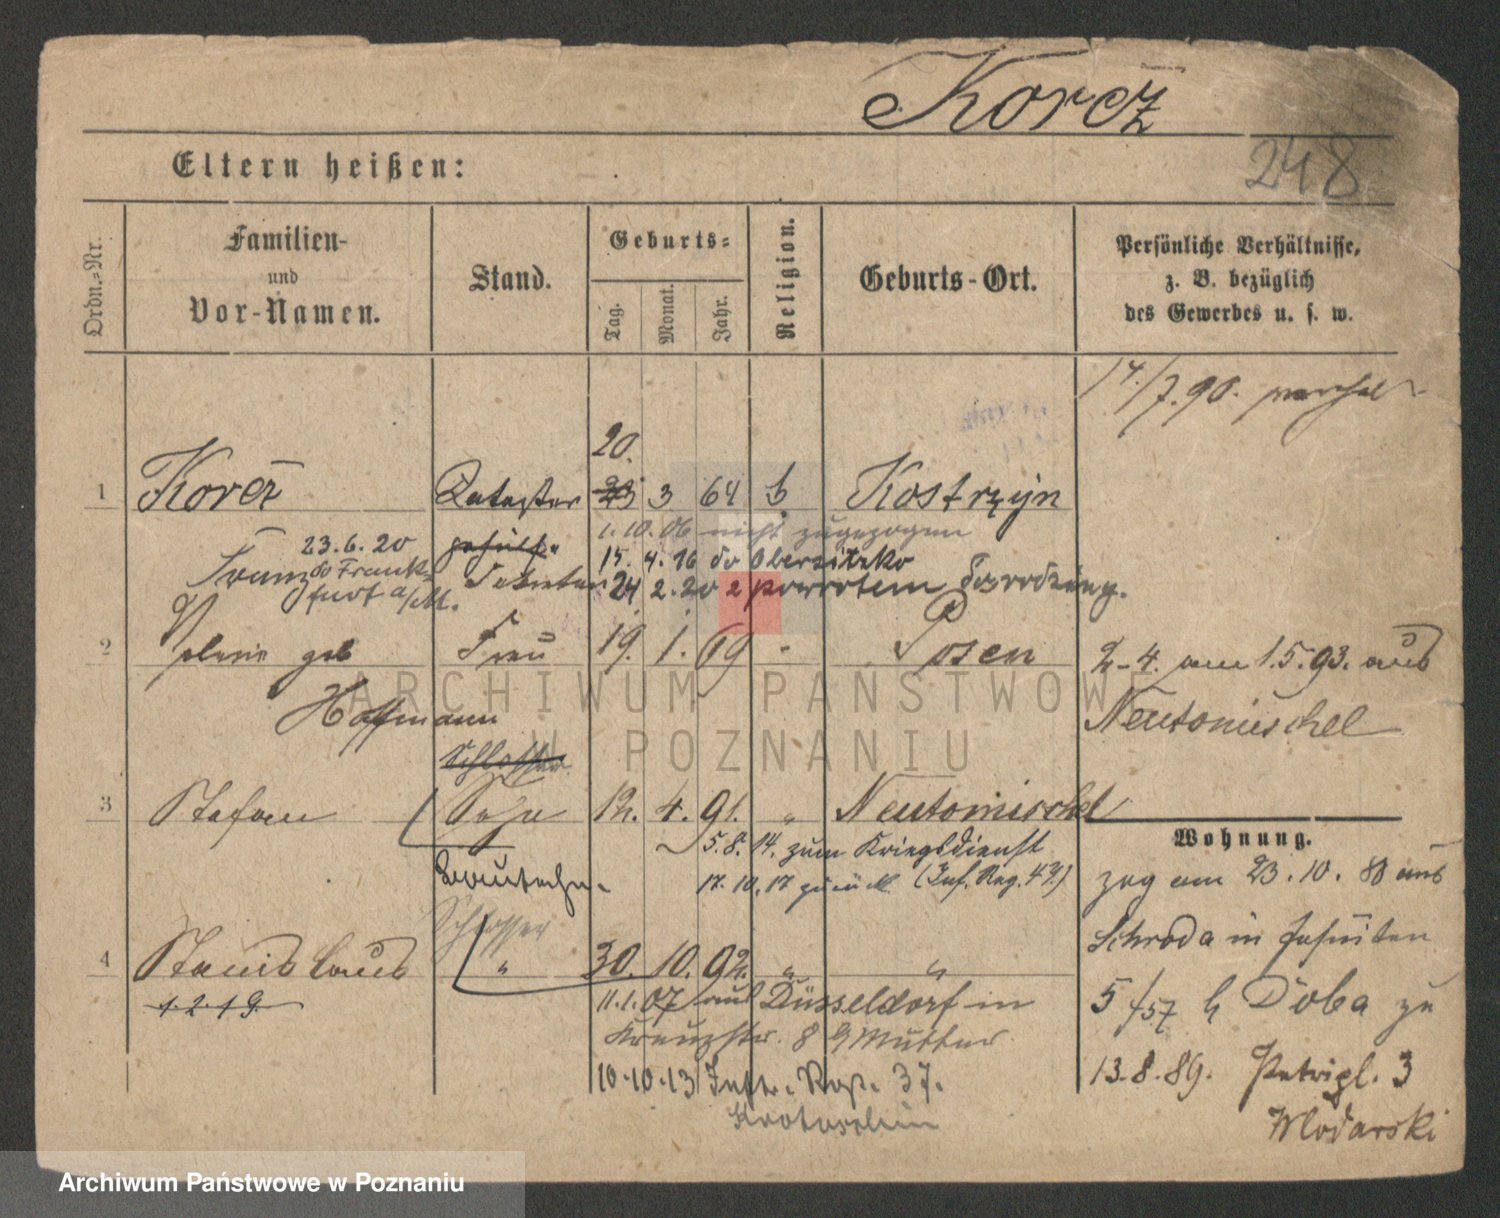 Korcz
248
Eltern heißen:
Ordn.-Nr.
Familien-
und
Vor-Namen.
Stand.
Geburts-
Tag.
Monat.
Jahr.
Religion.
Geburts-Ort.
Persönliche Verhältnisse,
z. B. bezüglich
des Gewerbes u. s. w.
14/7.90.
20.
1 Korcz Kataster 23 3 64 k Kostrzyn
gehülfe
1.10.06 nicht zugezogen
23.6.20
Franz do Frank-
furt a/M.
15. 4. 16 do Obersitzko
24 2. 20 z powrotem
2 geb Frau 19. 1. 69 - Posen
Hoffmann
2-4. am 1.5.93. aus
Neutomischel
Schlosser
3 Stefan Sohn 12. 4. 91. " Neutomischel
5.8.14. zum Kriegsdienst
17.10.17 zurück (Inf. Reg. 47.)
Schlosser
4 Stanislaus " 30. 10. 92. " "
1.2.19.
11.1.07 aus Düsseldorf in
Kreuzstr. 8 b Mutter
10.10.13 Inftr. Rgt. 37.
Krotoschin
Wohnung.
zog am 23.10.88 aus
Schroda in Jesuiten
5/57 b Doba zu
13.8.89. Petripl. 3
Wlodarski
ARCHIWUM PAŃSTWOWE
W POZNANIU
Archiwum Państwowe w Poznaniu